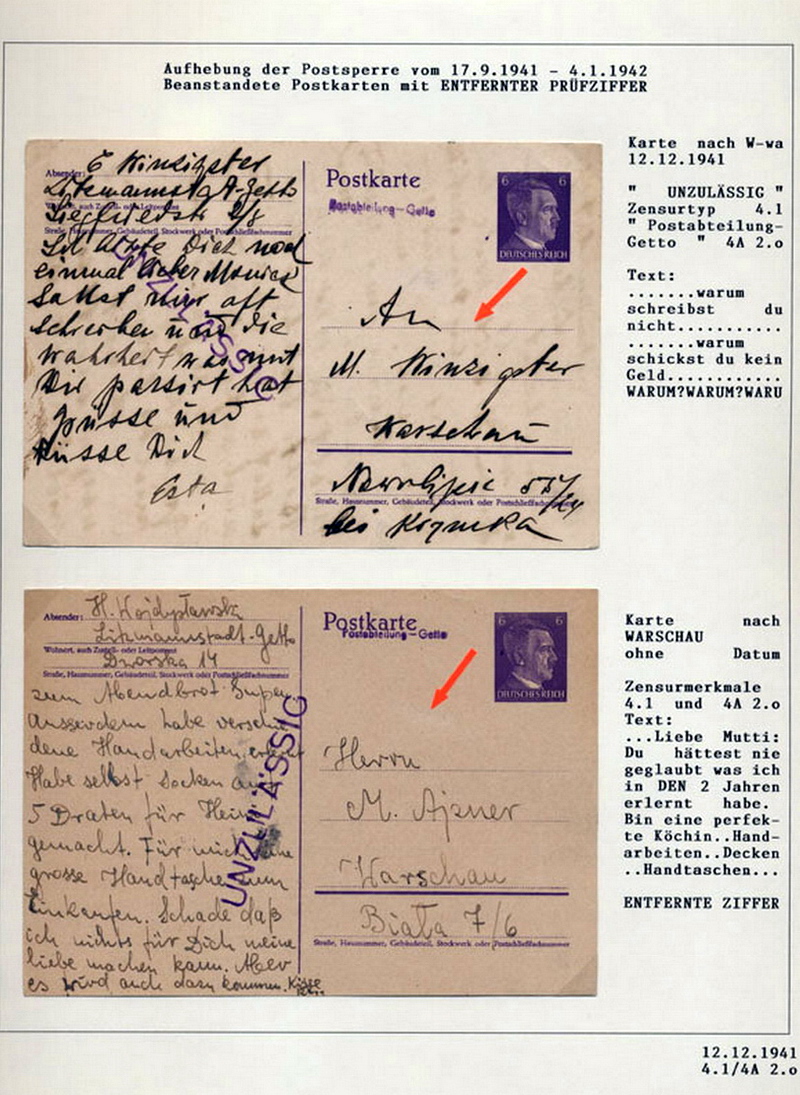 Aufhebung der Postsperre vom 17.9.1941 - 4.1.1942
Beanstandete Postkarten mit ENTFERNTER PRÜFZIFFER
Karte nach W-wa
12.12.1941
" UNZULÄSSIG "
Zensurtyp 4.1
" Postabteilung-
Getto " 4A 2.o
Text:
.......warum
schreibst du
nicht...........
.......warum
schickst du kein
Geld............
WARUM?WARUM?WARU
Absender:
E Winzigster
Litzmannstadt-Getto
Siegfriedstr 2/8
Wohnort, auch Zustell- oder Leitpostamt
Straße, Hausnummer, Gebäudeteil, Stockwerk oder Postschließfachnummer
Ich bitte Dich noch
einmal lieber Moniek
sollst mir oft
schreiben und die
Wahrheit was mit
Dir passirt hat
Grüsse und
Küsse Dich
UNZULÄSSIG
Postkarte
Postabteilung-Getto
6 6
DEUTSCHES REICH
An
M. Winzigster
Warschau
Nowolipie 55/
Straße, Hausnummer, Gebäudeteil, Stockwerk oder Postschließfachnummer
bei
Absender:
H. Wojdysławska
Litzmannstadt-Getto
Wohnort, auch Zustell- oder Leitpostamt
Dworska 14
Straße, Hausnummer, Gebäudeteil, Stockwerk oder Postschließfachnummer
zum Abendbrot Suppen
Ausserdem habe verschie
dene Handarbeiten erlernt
Habe selbst Socken auf
5 Draten für Heini
gemacht. Für mich eine
grosse Handtasche zum
Einkaufen. Schade daß
ich nichts für Dich meine
liebe machen kann. Aber
es wird auch dazu kommen. Küsse
UNZULÄSSIG
Postkarte
Postabteilung-Getto
6 6
DEUTSCHES REICH
Herrn
M. Ajzner
Warschau
Biała 7/6
Straße, Hausnummer, Gebäudeteil, Stockwerk oder Postschließfachnummer
Karte nach
WARSCHAU
ohne Datum
Zensurmerkmale
4.1 und 4A 2.o
Text:
...Liebe Mutti:
Du hättest nie
geglaubt was ich
in DEN 2 Jahren
erlernt habe.
Bin eine perfek-
te Köchin..Hand-
arbeiten..Decken
..Handtaschen...
ENTFERNTE ZIFFER
12.12.1941
4.1/4A 2.o